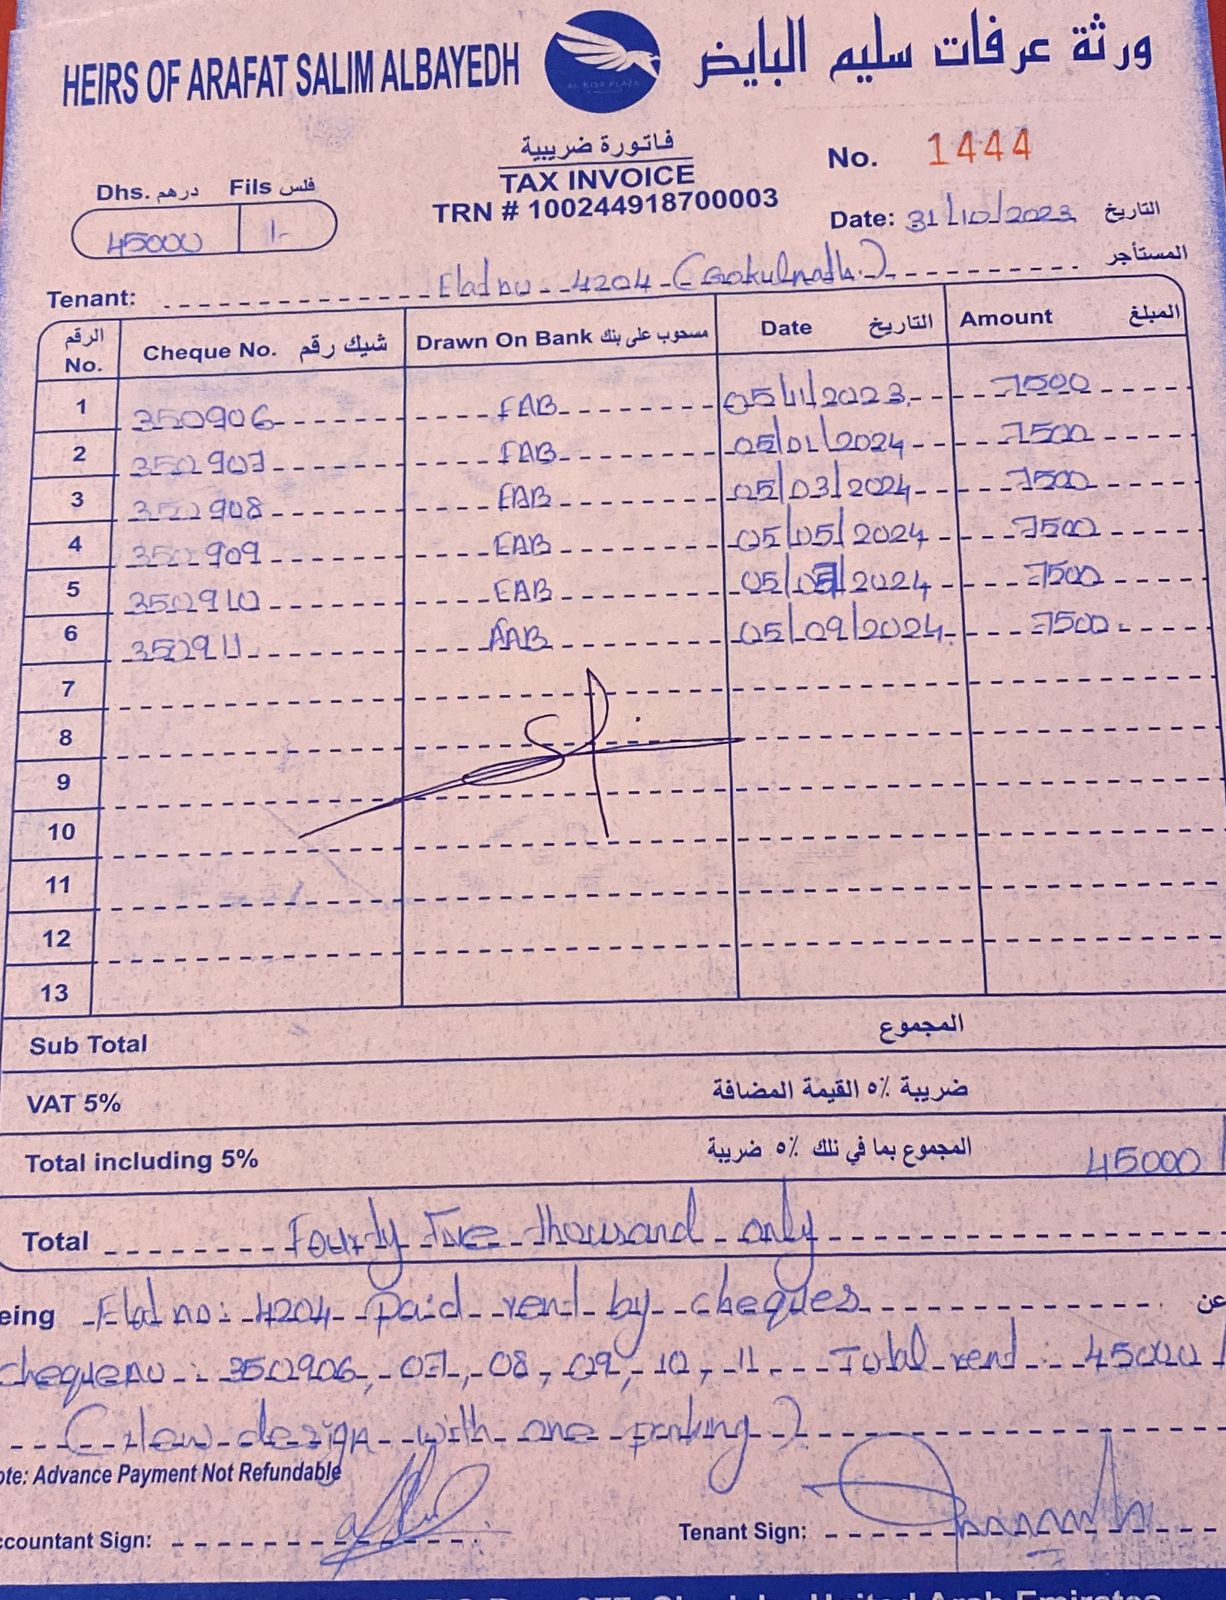 HEIRS OF ARAFAT SALIM ALBAYEDH
ورثة عرفات سليم البايض
AL BISR PLAZA
فاتورة ضريبية
TAX INVOICE
TRN # 100244918700003
No. 1444
Dhs. درهم Fils فلس
45000 /-
Date: 31/10/2023 التاريخ
Tenant: Flat no 4204 (Gokulnath) المستأجر
الرقم No. Cheque No. شيك رقم Drawn On Bank مسحوب على بنك Date التاريخ Amount المبلغ
1 350906 FAB 05/11/2023 7500
2 350907 FAB 05/01/2024 7500
3 350908 FAB 05/03/2024 7500
4 350909 FAB 05/05/2024 7500
5 350910 FAB 05/07/2024 7500
6 350911 FAB 05/09/2024 7500
7
8
9
10
11
12
13
Sub Total المجموع
VAT 5% ضريبة ٥٪ القيمة المضافة
Total including 5% المجموع بما في ذلك ٥٪ ضريبة 45000/
Total Fourty Five thousand only
eing Flat no: 4204 paid rent by cheques عن
chequeno: 350906, 07, 08, 09, 10, 11 Total rent: 45000/
(New design with one parking)
ote: Advance Payment Not Refundable
ccountant Sign: Tenant Sign: